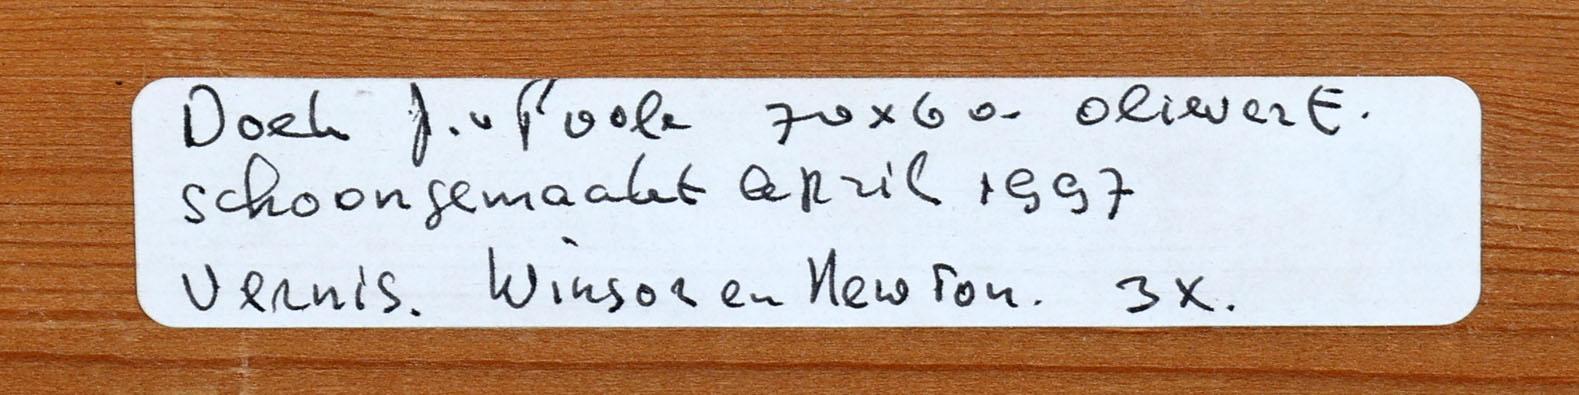 Doek J. v Poole 70x60- olieverf.
schoongemaakt April 1997
Vernis. Winsor en Newton. 3x.